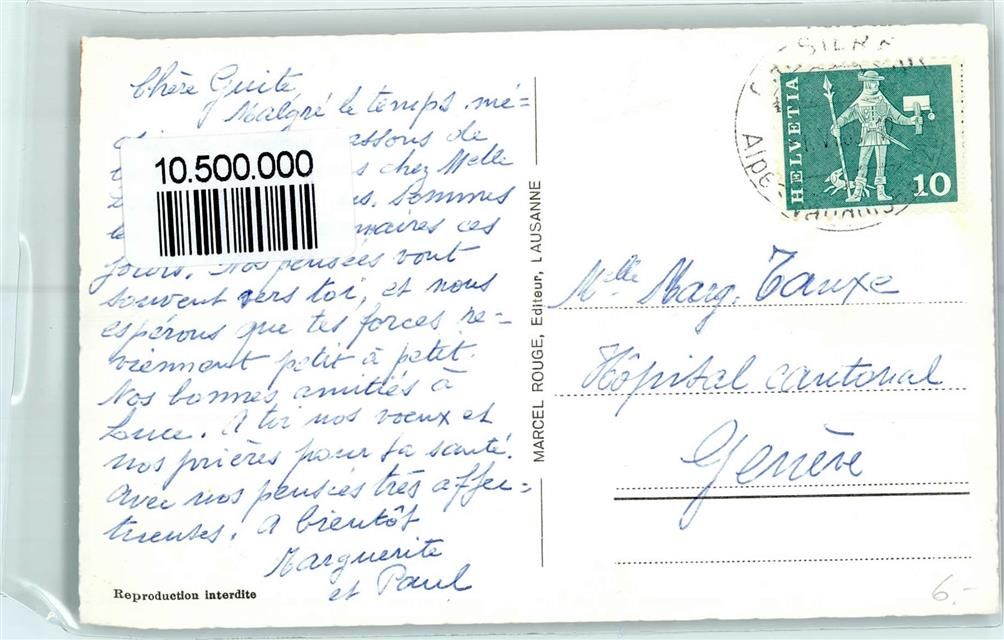 Chère Guite,
Malgré le temps mé=
assons de
s chez Melle
Sommes
maires ces
jours. Nos pensées vont
souvent vers toi, et nous
espérons que tes forces re=
viennent petit à petit.
Nos bonnes amitiés à
Luce. A toi nos voeux et
nos prières pour ta santé.
Avec nos pensées très affec=
tueuses. A bientôt
Marguerite
et Paul
Reproduction interdite
10.500.000
MARCEL ROUGE, Editeur, LAUSANNE
HELVETIA
10
Alpes vaudoises
Melle Marg. Tauxe
Hôpital cantonal
Genève
6.-